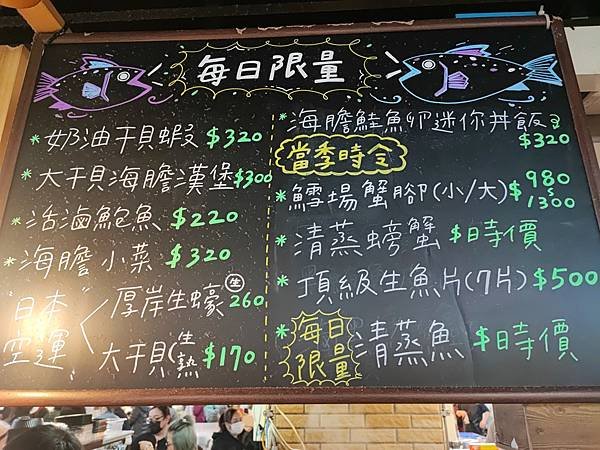 每日限量
*奶油干貝蝦 $320
*大干貝海膽漢堡$300
*活滷鮑魚 $220
*海膽小菜 $320
"日本"空運
厚岸生蠔 生 260
大干貝(生熱 $170
*海膽鮭魚卵迷你丼飯
$320
當季時令
*鱈場蟹腳(小/大)$980~1300
*清蒸螃蟹 $時價
*頂級生魚片(7片)$500
*每日限量 清蒸魚 $時價